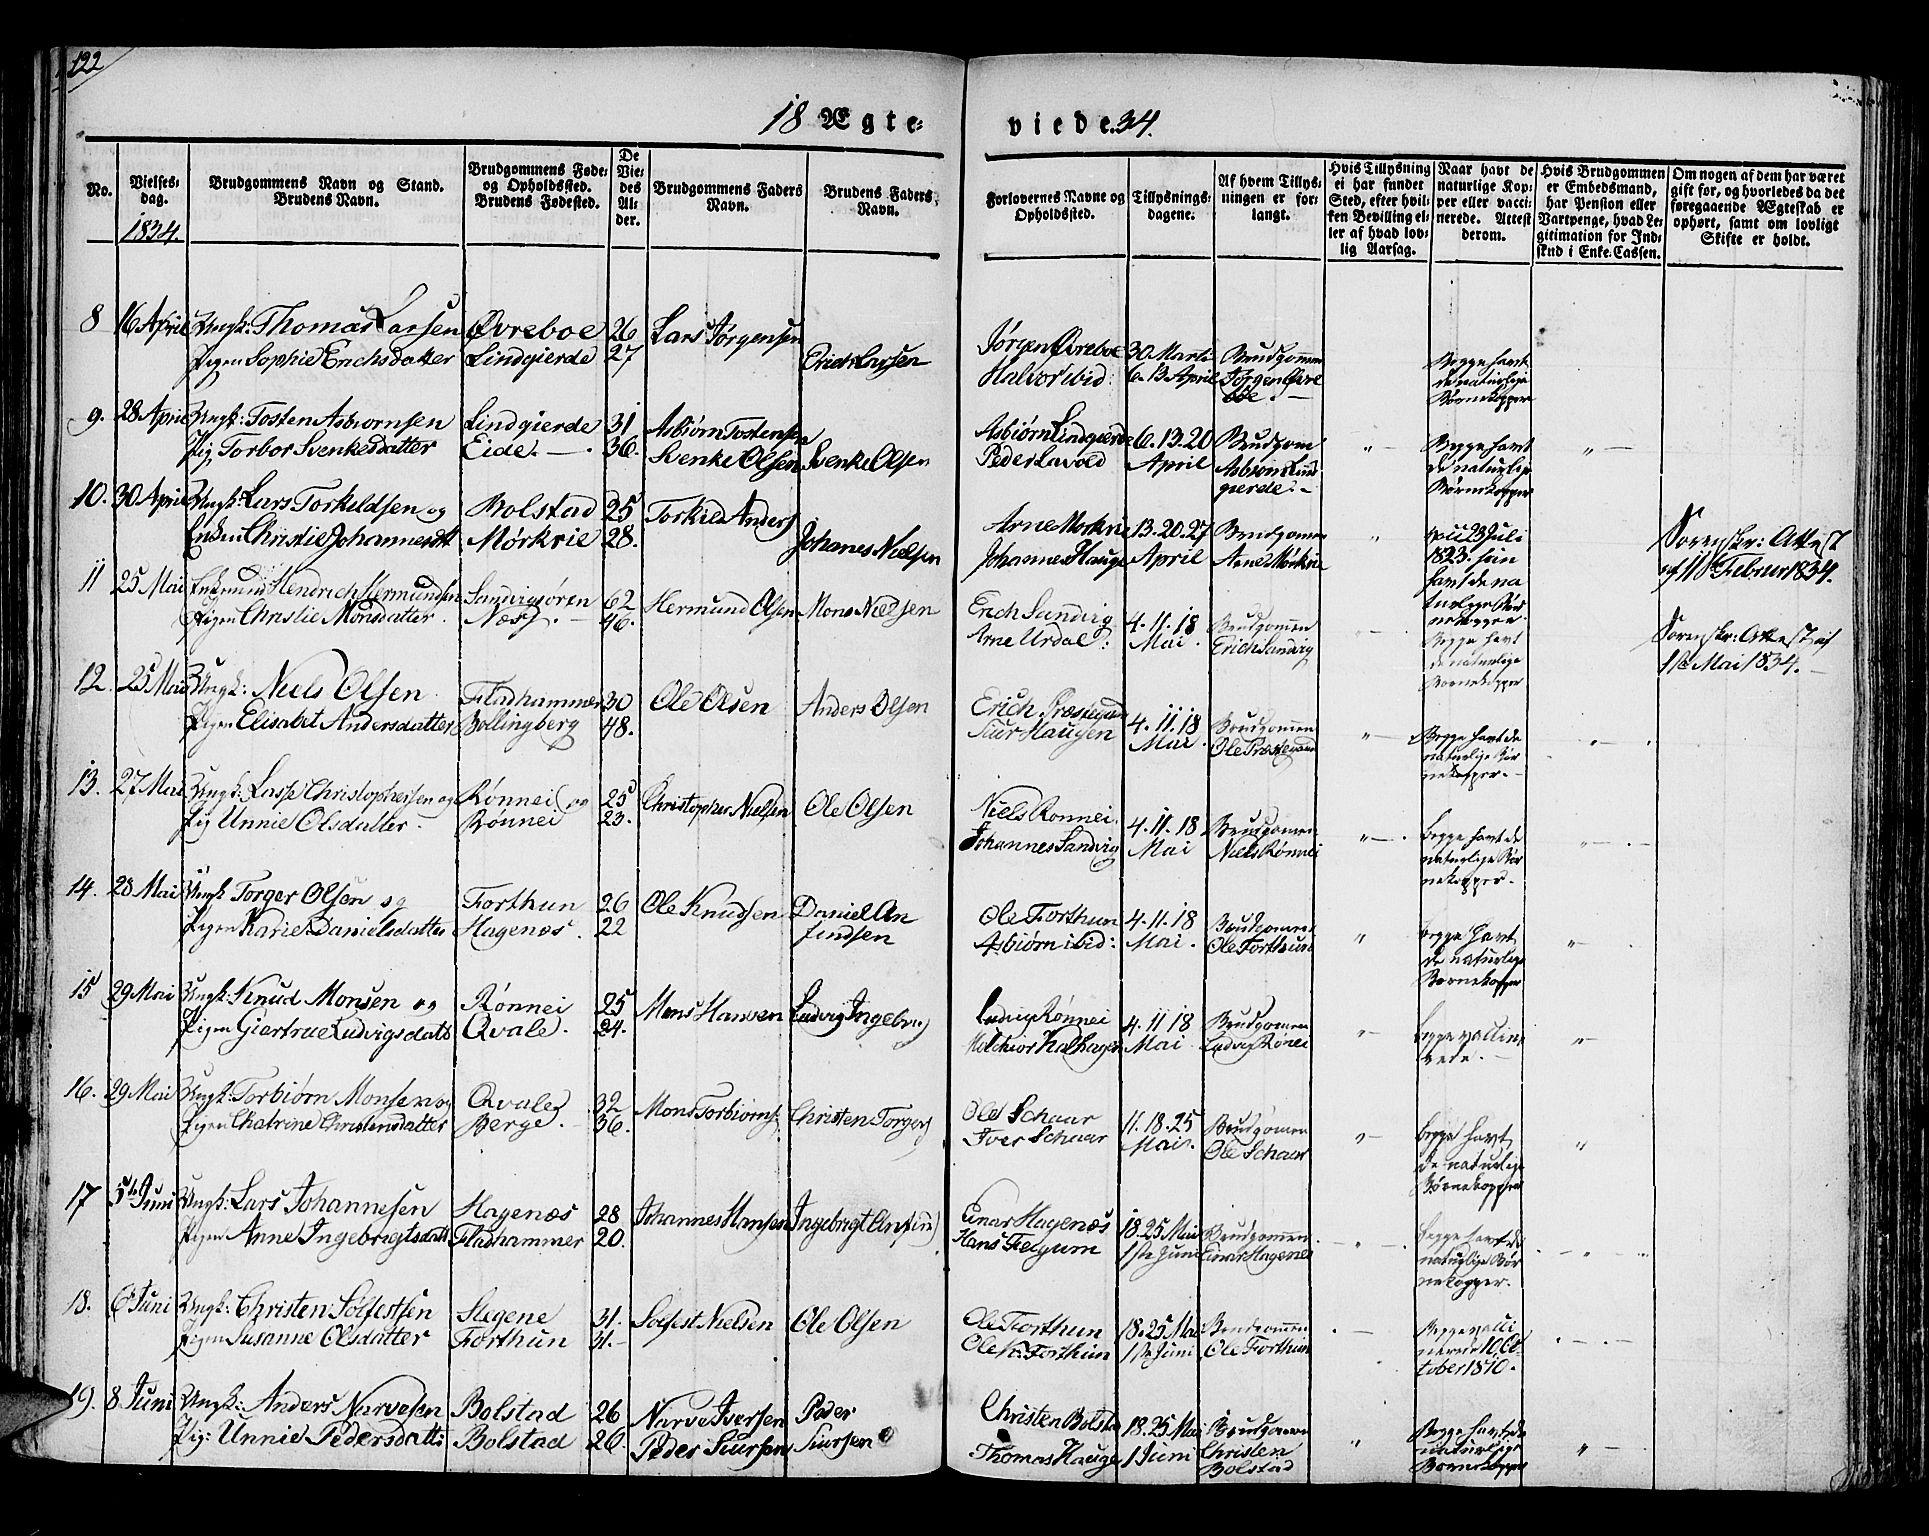 122
18 Ægte-viede. 34.
No.
Vielses-dag.
1834.
Brudgommens Navn og Stand.
Brudens Navn.
Brudgommens Føde-
og Opholdssted.
Brudens Fødested.
De
Vie-
des
Al-
der.
Brudgommens Faders
Navn.
Brudens Faders
Navn.
Forlovernes Navne og
Opholdssted.
Tillysnings-
dagene.
Af hvem Tillys-
ningen er for-
langt.
Hvis Tillysning
ei har fundet
Sted, efter hvil-
ken Bevilling el-
ler af hvad lov-
lig Aarsag.
Naar havt de
naturlige Kop-
per eller vacci-
nerede. Attest
derom.
Hvis Brudgommen
er Embedsmand,
har Pension eller
Vartpenge, hvad Le-
gitimation for Ind-
skud i Enke-Cassen.
Om nogen af dem har været
gift før, og hvorledes da det
foregaaende Ægteskab er
ophørt, samt om lovligt
Skifte er holdt.
8 16 April Ungk: Thomas Larsen Øvreboe 26 Lars Jørgensen
Pigen Sophie Erichsdatter Lindgierde 27 Erich Larsen
Jørgen Øvreboe 30 Marti Brudgommen
Halvor ibid: 6. 13 April Jørgen Øvre
boe.
Begge havt
de naturlige
Børnekopper
9. 28 April Ungk: Tosten Asbiørnsen Lindgierde 31 Asbiørn Tostensen
Pig Torbor Svenkesdatter Eide. 36. Svenke Olsen Svenke Olsen
Asbiørn Lindgierde 6. 13. 20 Brudgom
Peder Lavold April Asbiørn Lind
gierde.
Begge havt
de naturlige
Børnekopper
10. 30 April Ungk: Lars Torkildsen og Bolstad 25 Torkild Anders
Enken Christie Johannesdt Mørkrie 28. Johanes Nielsen
Arne Morkrie 13. 20. 27 Brudgommen
Johannes Hauge April Arne Mørkrie
23 Juli
1823. hun
havt de na
turlige Bør
nekopper
Sorenskr: Attest
af 11 Februr 1834.
11 25 Mai Enkemand Hendrich Hermundsen Sandvigsøren 62 Hermund Olsen Mons Nielsen
Pigen Christie Monsdatter Næss. 46.
Erich Sandvig 4. 11. 18 Brudgommen
Arne Urdal: Mai. Erich Sandvig
Begge havt
de naturlige
Børnekopper
Sorenskr: Attest af
1ste Mai 1834.
12. 25 Mai Ungk: Niels Olsen Fladhammer 30 Ole Olsen Anders Olsen
Pigen Elisabet Andersdatter Bollingberg 48.
Erich Præstegaard 4. 11. 18 Brudgommen
Siur Haugen Mai. Ole Præstegaard
Begge havt de
naturlige Bør
nekopper.
13. 27 Mai Ungk: Lasse Christophersen og Rønnei og 25 Christopher Nielsen Ole Olsen
Pig Unnie Olsdatter. Rønnei 23.
Niels Ronnei. 4. 11. 18 Brudgommen
Johannes Sandvig Mai Niels Rønnei
begge havt de
naturlige Bør
nekopper.
14. 28 Mai Ungk Torger Olsen og Forthun 26 Ole Knudsen Daniel An
Pigen Karie Danielsdatter Hagenæs. 22 findsen
Ole Forthun 4. 11. 18 Brudgommen
Asbiørn ibid: Mai. Ole Forthun
begge havt
de naturlige
Børnekopper
15 29 Mai Ungk: Knud Monsen og Rønnei 25 Mons Hansen Ludvig Ingebr
Pigen Giertrue Ludvigsdatt Qvale. 24.
Ludvig Rønnei 4. 11 18 Brudgommen
Melchior Kalhagen Mai Ludvig Rønei
begge vaccine
rede.
16. 29 Mai Ungk: Torbiørn Monsen og Qvale 32 Mons Torbiørns Christen Torgers
Pigen Chatrine Christensdatter Berge. 36.
Ole Schaar 11. 18. 25 Brudgommen
Iver Schaar Mai. Ole Schaar
begge havt
de naturlige
Børnekopper
17 5te Juni Ungk: Lars Johannesen Hagenæs 28 Johannes Hansen Ingebrigt Anfin
Pigen Anne Ingebrigtsdatt Fladhammer 20.
Einar Hagenæs 18. 25 Mai Brudgommen
Hans Feigum 1ste Juni Einar Hagenes
begge havt de
naturlige Bør
nekopper.
18. 6 Juni Ungk: Christen Solfestsen Slegene 31. Solfest Nielsen Ole Olsen
Pigen Susanne Olsdatter Forthun 31.
Ole Forthun 18. 25 Mai Brudgommen
Ole Forthun 1ste Juni Ole Forthun
Begge vacci
nerede 10 Oc
tober 1810.
19. 8 Juni Ungk: Anders Narvesen Bolstad 26 Narve Iversen Peder
Pig: Unnie Pedersdatt: Bolstad 26. Peder Siursen Siursen
Christen Bolstad 18. 25 Mai Brudgommen
Thomas Hauge 1 Juni Christen
Bolstad
Begge havt de
naturlige
Børnekopper